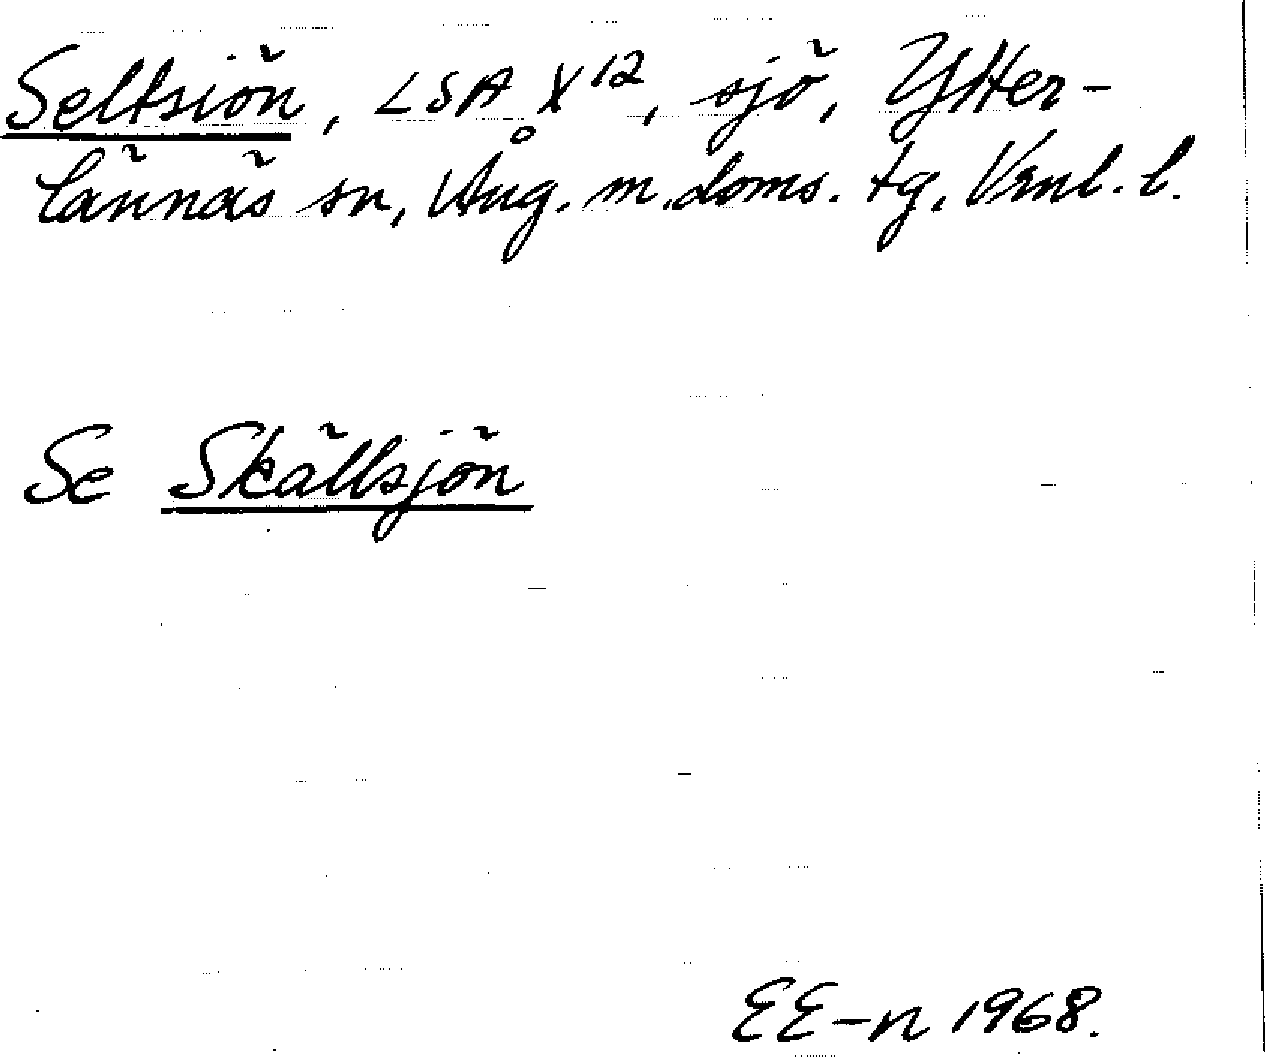 Seltsiön, LSA X12, sjö, Ytter-
lännäs sn, Ång. m. doms. tg, Vnl. l.
Se Skällsjön
EE-n 1968.